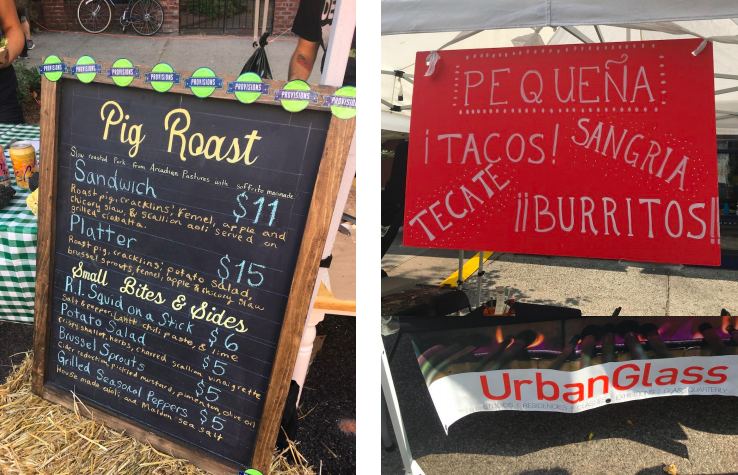 PROVISIONS PROVISIONS PROVISIONS PROVISIONS PROVISIONS PROVISIONS PROVISIONS
Pig Roast
Slow roasted Pork from Arcadian Pastures with soffrito marinade
Sandwich $11
Roast pig, cracklins', fennel, apple and
chicory slaw, & scallion aoli served on
grilled ciabatta.
Platter $15
Roast pig, cracklins, potato salad,
brussel sprouts, fennel, apple & chicory slaw
Small Bites & Sides
R.I. Squid on a Stick $6
Salt & pepper, chili paste, & lime
Potato Salad $5
Crispy shallot, herbs, charred scallion vinaigrette
Brussel Sprouts $5
Cider reduction, pickled mustard, pimenton, olive oil
Grilled Seasonal Peppers $5
House made aioli, and Maldon sea salt
PEQUEÑA
¡TACOS! SANGRIA
TECATE
¡¡BURRITOS!!
UrbanGlass
QUARTERLY